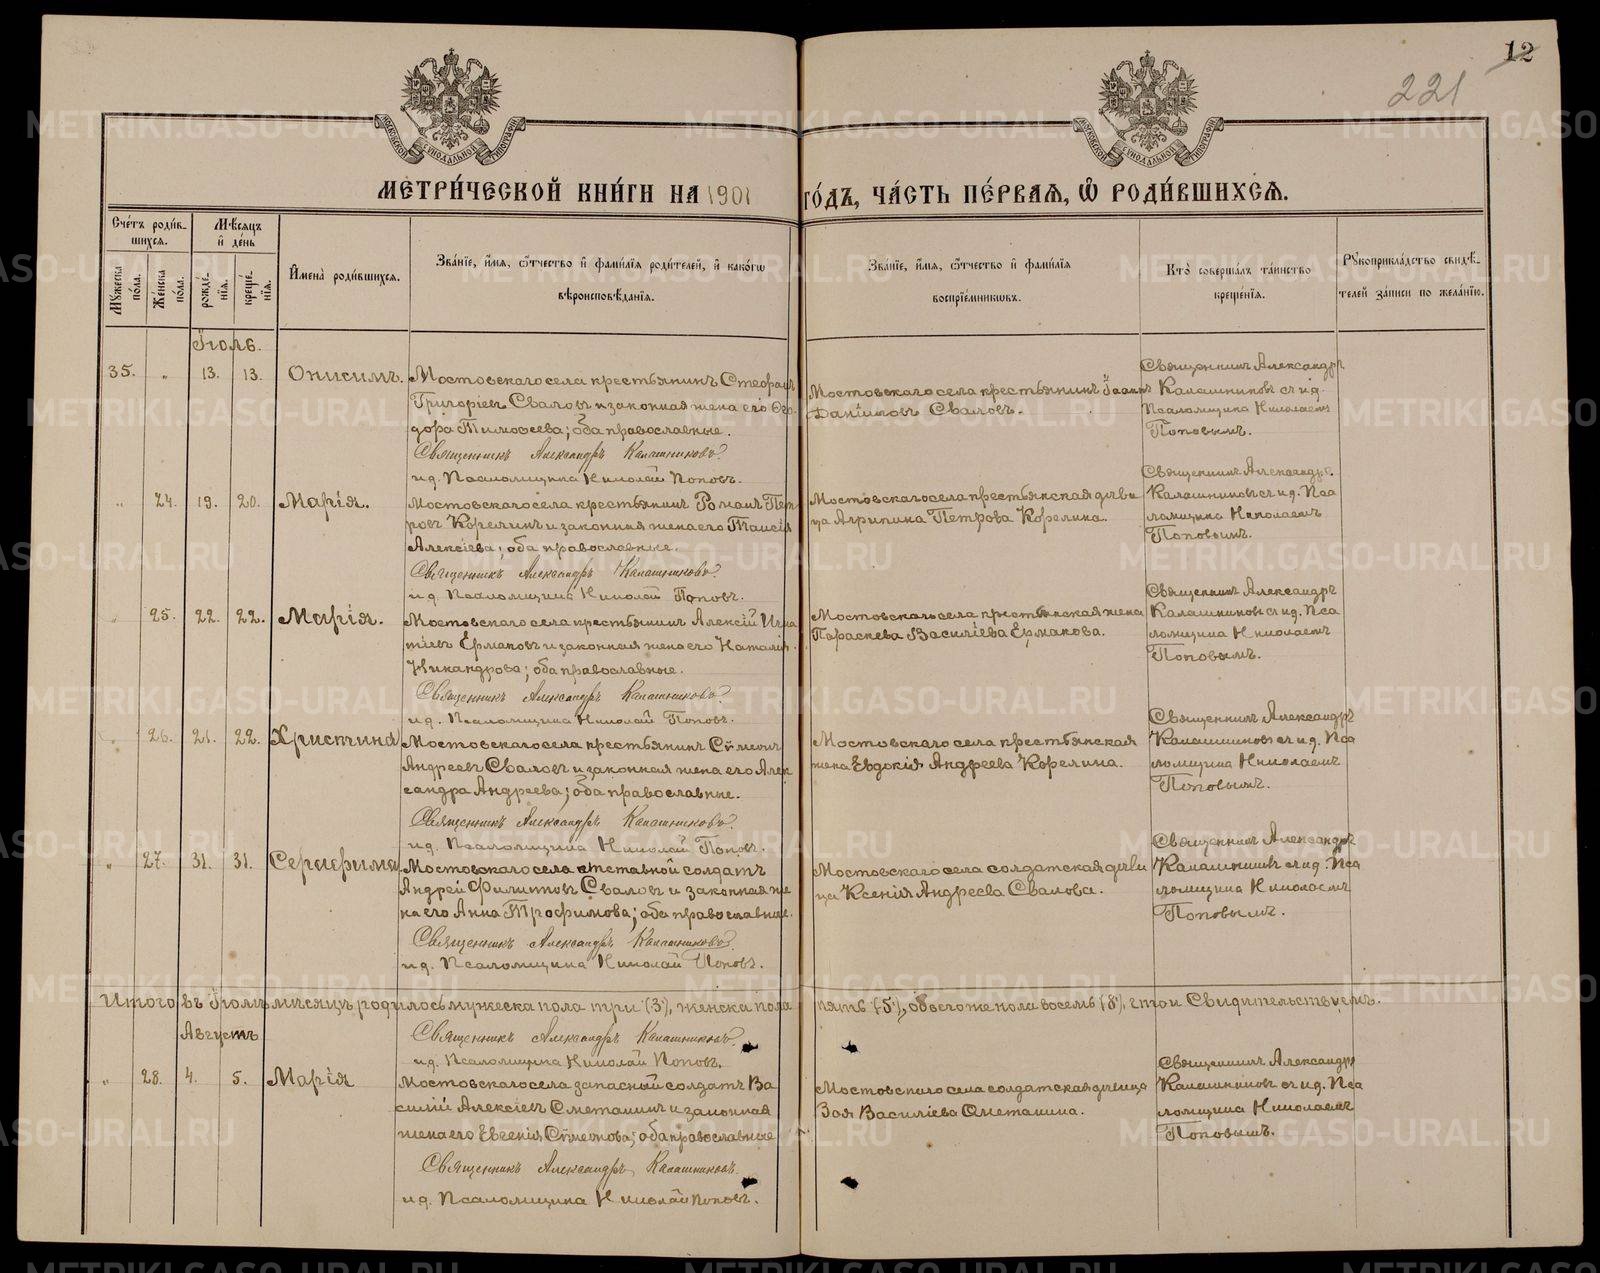 12
221
МОСКОВСКОЙ СѴНОДАЛЬНОЙ ТИПОГРАФІИ
МОСКОВСКОЙ СѴНОДАЛЬНОЙ ТИПОГРАФІИ
МЕТРИ́ЧЕСКОЙ КНИ́ГИ НА 1901 ГО́ДЪ, ЧА́СТЬ ПЕ́РВАЯ, Ѽ РОДИ́ВШИХСЯ.
Сче́тъ роди́в-
шихся.
Мѣсяцъ
и҆ де́нь
Мꙋ́жеска по́ла.
Же́нска по́ла.
рожде́-нія.
креще́-нія.
И҆мена̀ роди́вшихся.
Зва́нїе, и҆́мя, ѻ҆́тчество и҆ фами́лїя роди́телей, и҆ како́гѡ
вѣроисповѣ́данїя.
Зва́нїе, и҆́мя, ѻ҆́тчество и҆ фами́лїя
воспрїе́мникѡвъ.
Кто̀ соверша́лъ та́инство
креще́нїя.
Рꙋкоприкла́дство свидѣ́-
телей за́писи по жела́нїю.
Іюль.
35. „ 13. 13. Онисимъ.
Мостовскаго села крестьянинъ Стефанъ
Григоріев Сваловъ и законная жена его Ѳео-
дора Тимоѳеева; оба православные.
Священникъ Александръ Калашниковъ.
и д. Псаломщика Николай Поповъ.
Мостовскаго села крестьянинъ Іоаннъ
Даніиловъ Сваловъ.
Священникъ Александръ
Калашниковъ съ и д.
Псаломщика Николаемъ
Поповымъ.
„ 24. 19. 20. Марія.
Мостовскаго села крестьянинъ Романъ Пет-
ровъ Корелинъ и законная жена его Таисія
Алексіева; оба православные.
Священникъ Александръ Калашниковъ.
и д. Псаломщика Николай Поповъ.
Мостовскаго села крестьянская дѣви
ца Агрипина Петрова Корелина.
Священникъ Александръ
Калашниковъ съ и д. Пса
ломщика Николаемъ
Поповымъ.
„ 25. 22. 22. Марія.
Мостовскаго села крестьянинъ Алексій Игна
тіевъ Ермаковъ и законная жена его Наталія
Никандрова; оба православные.
Священникъ Александръ Калашниковъ.
и д. Псаломщика Николай Поповъ.
Мостовскаго села крестьянская жена
Параскева Василіева Ермакова.
Священникъ Александръ
Калашниковъ съ и д. Пса
ломщика Николаемъ
Поповымъ.
„ 26. 21. 22. Христина
Мостовскаго села крестьянинъ Сѵмеонъ
Андреевъ Сваловъ и законная жена его Алек
сандра Андреева; оба православные.
Священникъ Александръ Калашниковъ.
и д. Псаломщика Николай Поповъ.
Мостовскаго села крестьянская
жена Евдокія Андреева Корелина.
Священникъ Александръ
Калашниковъ съ и д. Пса
ломщика Николаемъ
Поповымъ.
„ 27. 31. 31. Серафима
Мостовскаго села отставной солдатъ
Андрей Филиповъ Сваловъ и законная же
на его Анна Трофимова; оба православные.
Священникъ Александръ Калашниковъ.
и д. Псаломщика Николай Поповъ.
Мостовскаго села солдатская дѣви
ца Ксенія Андреева Свалова.
Священникъ Александръ
Калашниковъ съ и д. Пса
ломщика Николаемъ
Поповымъ.
Итого въ Іюлѣ мѣсяцѣ родилось мужеска пола три (3), женска пола пять (5), обоего же пола восемь (8), что и Свидѣтельствуемъ.
Августъ
Священникъ Александръ Калашниковъ.
и д. Псаломщика Николай Поповъ.
„ 28. 4. 5. Марія
Мостовскаго села запасный солдатъ Ва
силій Алексіевъ Сметанинъ и законная
жена его Евгенія Сѵмеонова; оба православные
Священникъ Александръ Калашниковъ.
и д. Псаломщика Николай Поповъ.
Мостовскаго села солдатская дѣвица
Зоя Василіева Сметанина.
Священникъ Александръ
Калашниковъ съ и д. Пса
ломщика Николаемъ
Поповымъ.
METRIKI.GASO-URAL.RU